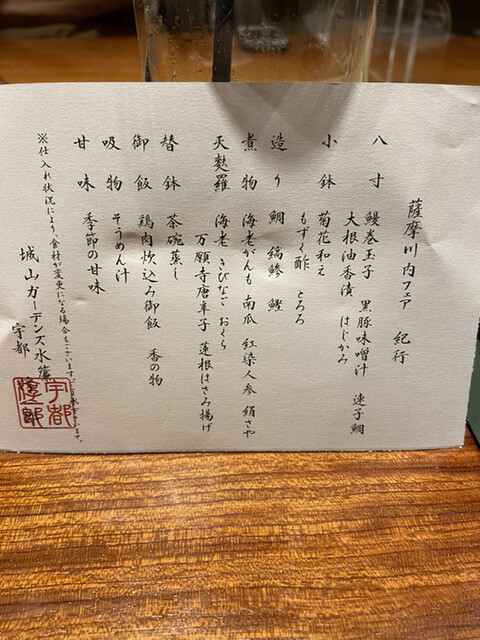 薩摩川内フェア 紀行
八寸 鰻巻玉子 黒豚味噌汁 連子鯛
大根油香漬 はじかみ
小鉢 菊花和え
もずく酢 とろろ
造り 鯛 縞鯵 鰹
煮物 海老がんも 南瓜 紅染人参 絹さや
天麩羅 海老 きびなご おくら
万願寺唐辛子 蓮根はさみ揚げ
替鉢 茶碗蒸し
御飯 鶏肉炊込み御飯 香の物
吸物 そうめん汁
甘味 季節の甘味
※仕入れ状況により食材が変更になる場合もございます。
城山ガーデンズ水簾
宇都
宇都